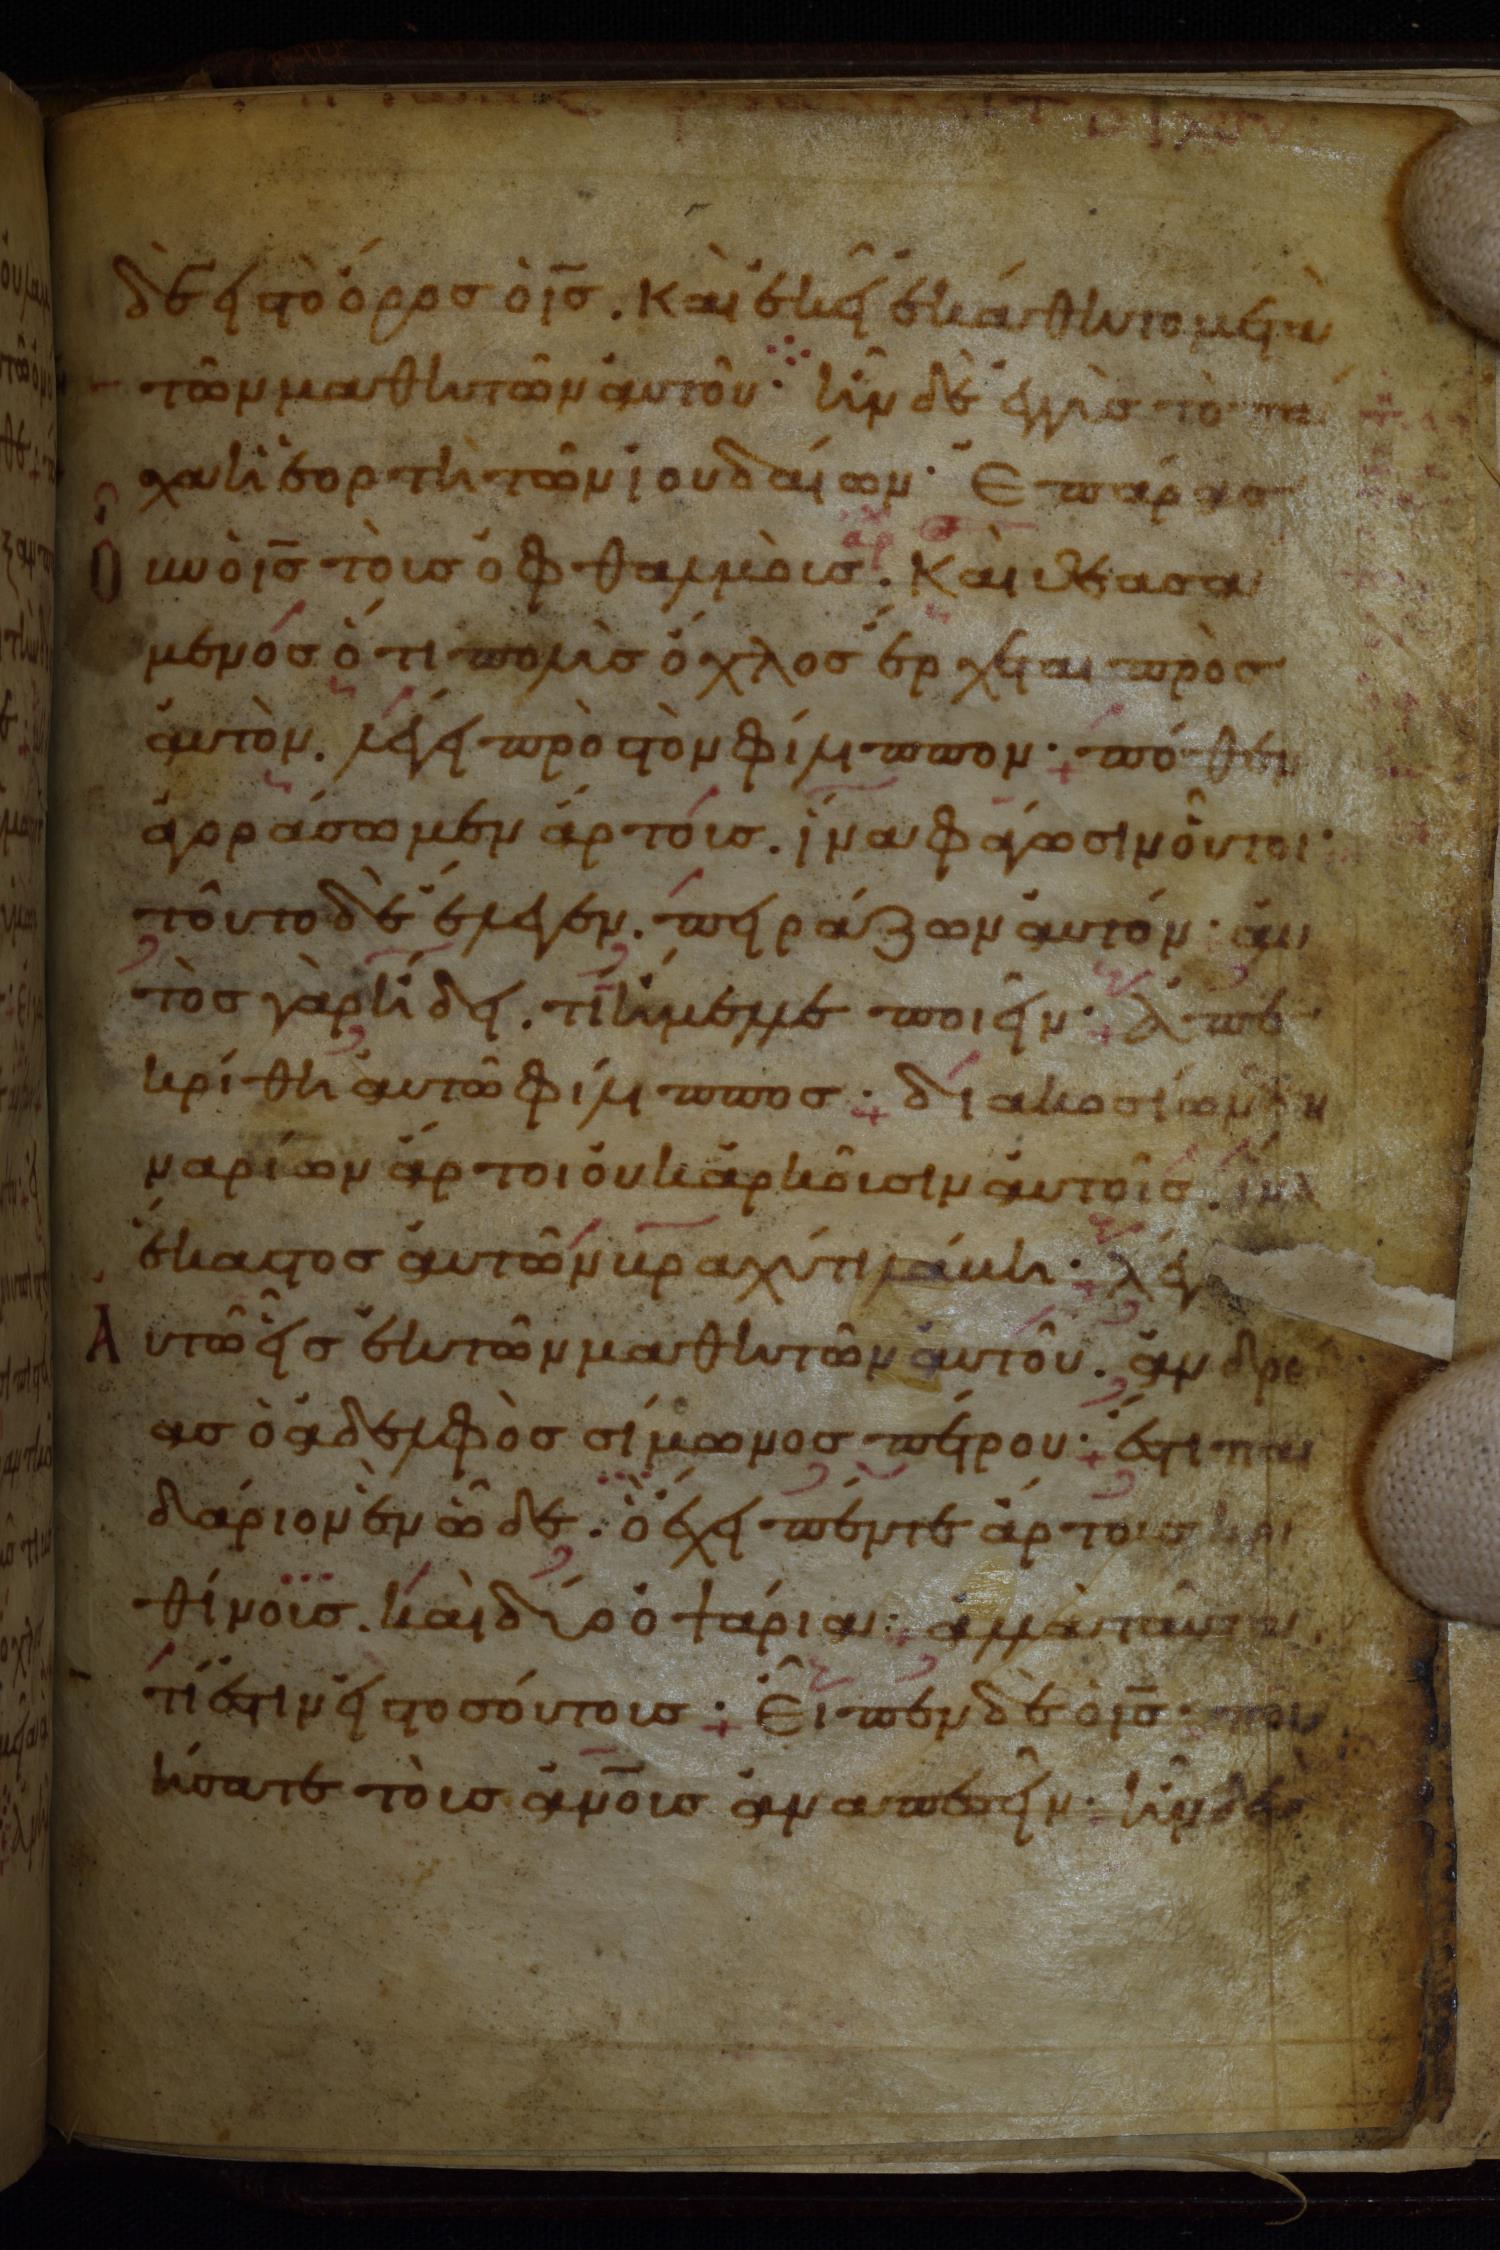 δὲ εἰς τὸ ὄρος ὁ ις̅. Καὶ ἐκεῖ ἐκάθητο μετὰ
τῶν μαθητῶν ἀυτοῦ· ἦν δὲ ἐγγὺς τὸ πά
χα ἡ ἑορτὴ τῶν ἰουδαίων· Ἐπάρας
Ουν ὁ ις̅ τοὺς ὀφθαλμοὺς. Καὶ θεασά
μενος ὅτι πολὺς ὄχλος ἔρχεται πρὸς
ἀυτὸν. λέγει πρὸς τὸν φίλιππον· πόθεν
ἀγοράσωμεν ἄρτους. ἵνα φάγωσιν οὗτοι·
τοῦτο δὲ ἔλεγεν. πειράζων ἀυτόν· ἀυ
τὸς γὰρ ἤδει. τί ἤμελλε ποιεῖν· Ἀπε
κρίθη ἀυτῶ φίλιππος· διακοσίων δη
ναρίων ἄρτοι οὐκ ἀρκοῦσιν ἀυτοῖς. ἵνα
ἕκαστος ἀυτῶν βραχύ τι λάβη· λέγ
Αυτῶ εἷς ἐκ τῶν μαθητῶν ἀυτοῦ. ἀνδρέ
ας ὁ ἀδελφὸς σίμωνος πέτρου· ἔστι παι
δάριον ἓν ὧδε. ὃ ἔχει πέντε ἄρτους κρι
θίνους. καὶ δύο ὀψάρια· ἀλλὰ ταῦτα
τί ἐστιν εἰς τοσούτους· Εἶπεν δὲ ὁ ις̅· ποι
ήσατε τοὺς ἀνο̅υς ἀναπεσεῖν· ἦν δὲ